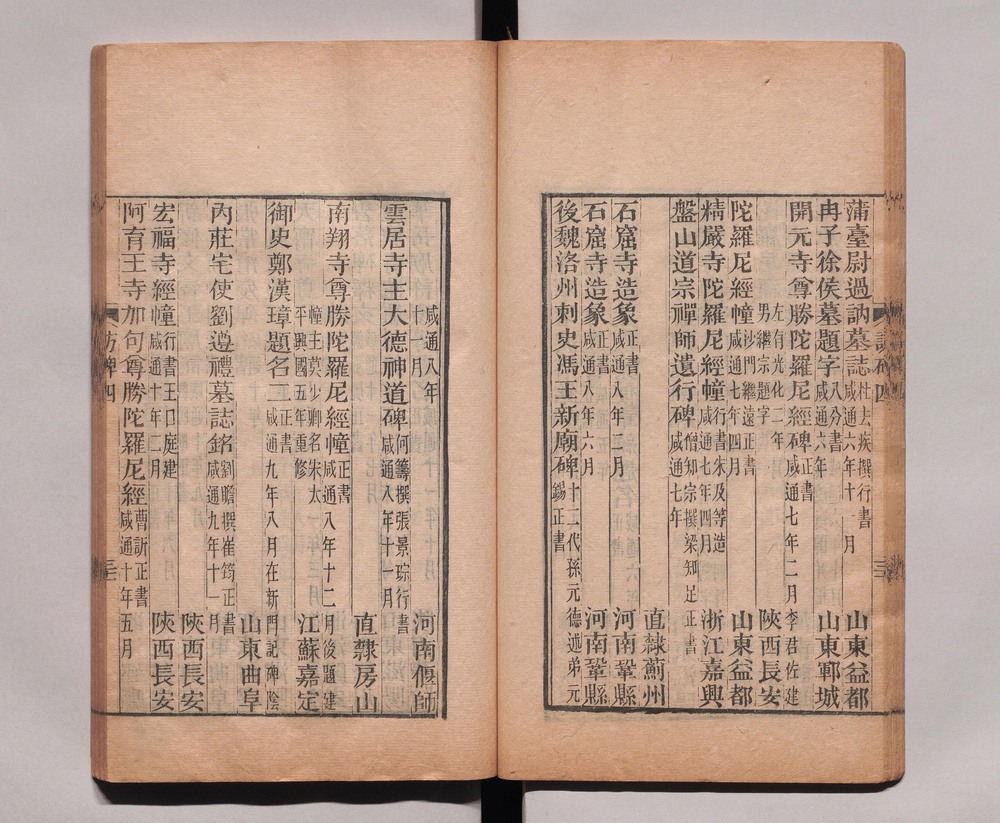 蒲臺尉過訥墓誌杜去疾撰行書咸通六年十一月 山東益都
冉子徐侯墓題字八分書咸通六年 山東鄆城
開元寺尊勝陀羅尼經碑正書咸通七年二月李君佐建
左有光化二年男繼宗題字 陝西長安
陀羅尼經幢沙門繼遠正書咸通七年四月 山東益都
精嚴寺陀羅尼經幢行書朱及等造咸通七年四月 浙江嘉興
盤山道宗禪師遺行碑僧知宗撰梁知足正書咸通七年
直隸薊州
石窟寺造象正書咸通八年二月 河南鞏縣
石窟寺造象正書咸通八年六月 河南鞏縣
後魏洛州刺史馮王新廟碑十二代孫元德述弟元錫正書
咸通八年十一月 河南偃師
雲居寺主大德神道碑何籌撰張景琮行書咸通八年十一月
直隸房山
南翔寺尊勝陀羅尼經幢正書咸通八年十二月後題建
幢主莫少卿名朱太平興國五年重修 江蘇嘉定
御史鄭漢璋題名三正書咸通九年八月在新門記碑陰
山東曲阜
內莊宅使劉遵禮墓誌銘劉瞻撰崔筠正書咸通九年十一月
陝西長安
宏福寺經幢行書王口庭建咸通十年二月 陝西長安
阿育王寺加句尊勝陀羅尼經曹訢正書咸通十年五月
訪碑四
三